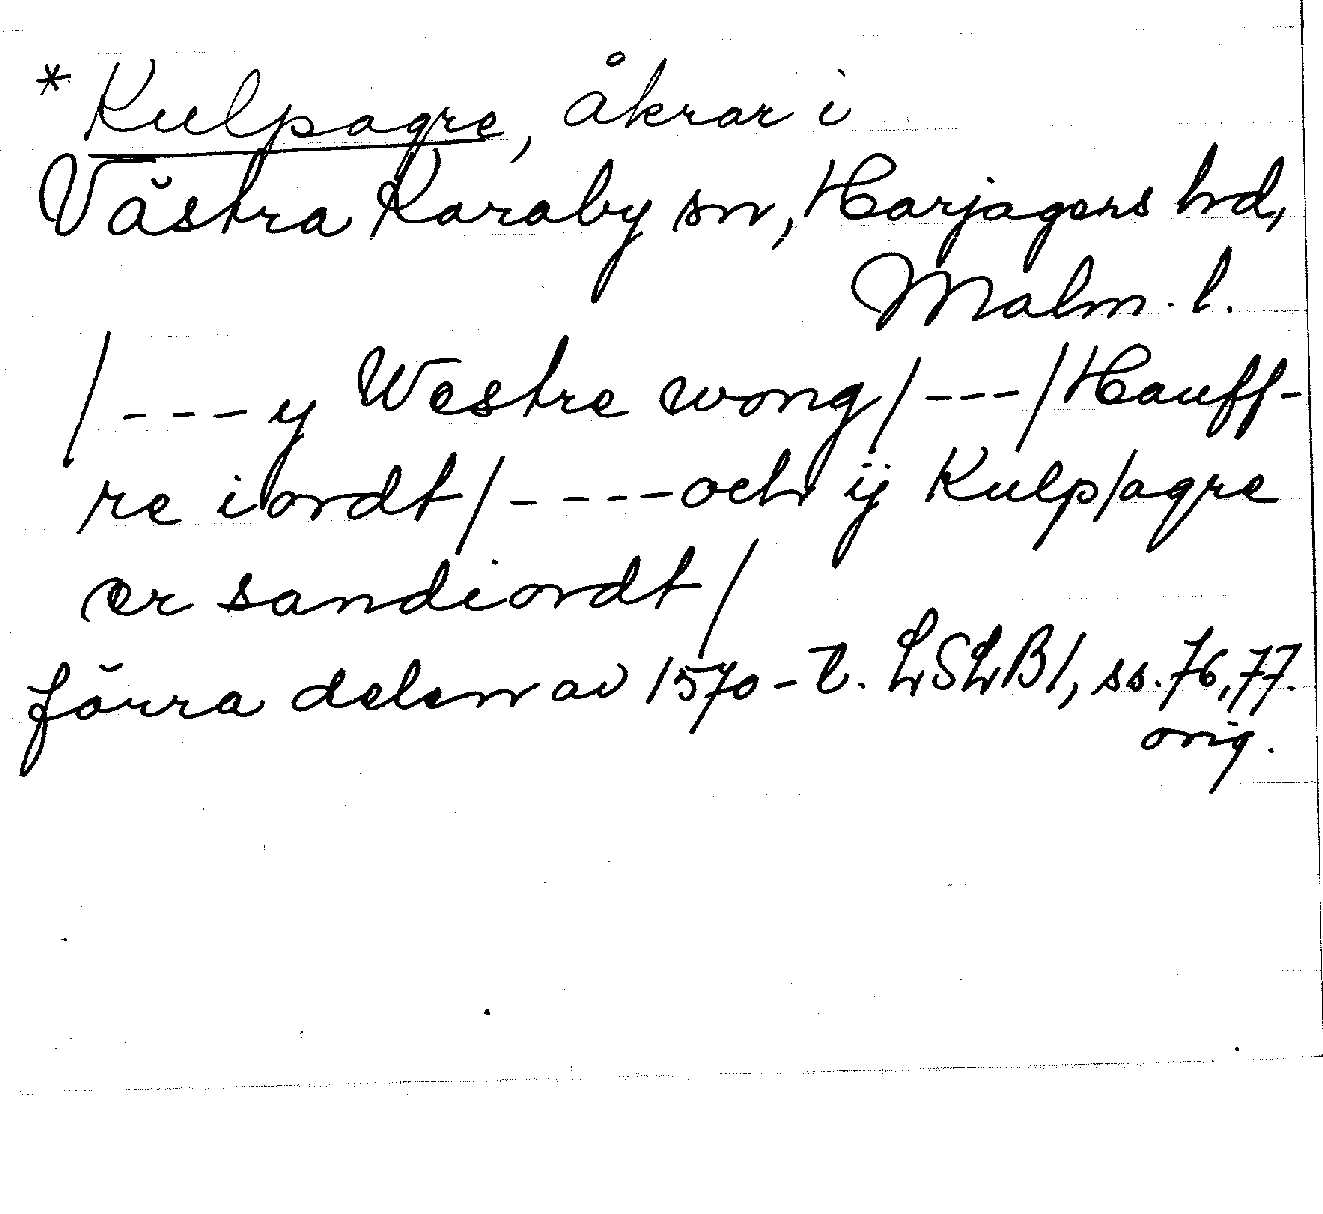 * Kulpagre, åkrar i
Västra Karaby sn, Harjagers hd,
Malm. l.
/---y Westre wong/---/Hauff-
re iordt/----och ij Kulp/agre
er sandiordt/
förra delen av 1570-t. LSLB1, ss. 76, 77.
orig.